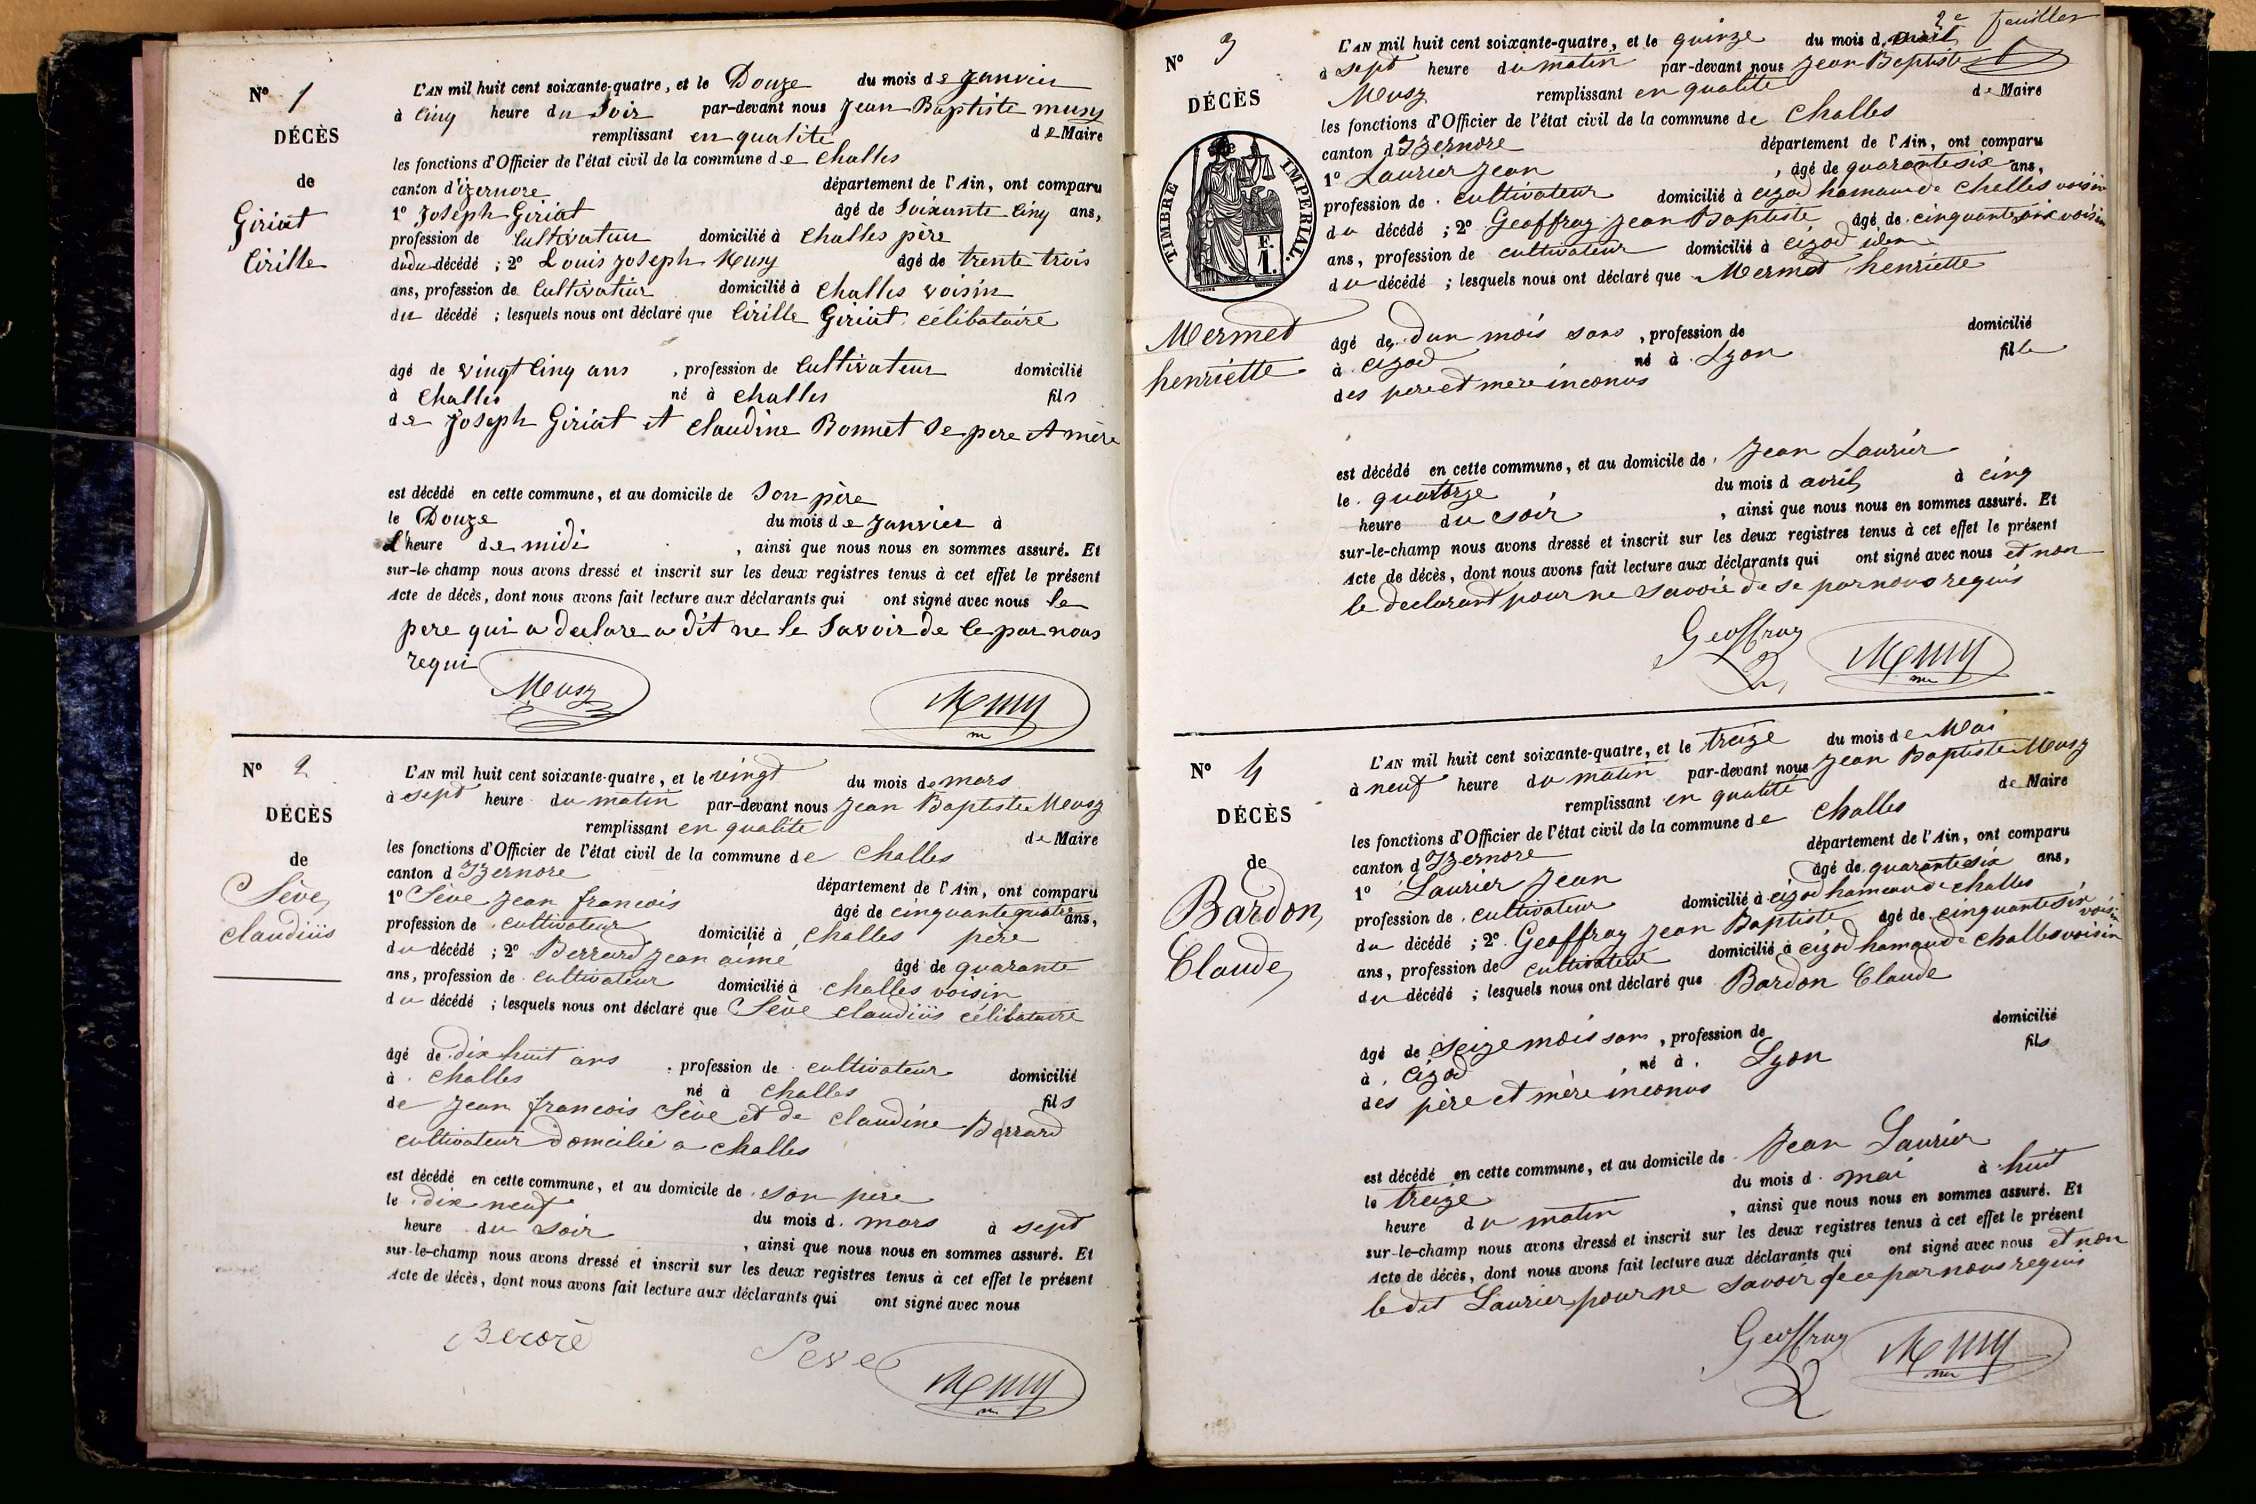 N° 1
DÉCÈS
de
Giriat
Cirille
L'AN mil huit cent soixante-quatre, et le Douze du mois de Janvier
à Cinq heure du Soir par-devant nous Jean Baptiste musy
remplissant en qualité de Maire
les fonctions d'Officier de l'état civil de la commune de Challes
canton d'izernore département de l'Ain, ont comparu
1° Joseph Giriat âgé de Soixante Cinq ans,
profession de Cultivateur domicilié à Challes père
dudu décédé ; 2° Louis Joseph Musy âgé de trente trois
ans, profession de Cultivateur domicilié à Challes voisin
du décédé ; lesquels nous ont déclaré que Cirille Giriat célibataire
âgé de vingt Cinq ans , profession de Cultivateur domicilié
à Challes né à Challes fils
de Joseph Giriat et Claudine Bonnet Se pere et mère
est décédé en cette commune, et au domicile de Son père
le Douze du mois de Janvier à
L'heure de midi , ainsi que nous nous en sommes assuré. Et
sur-le-champ nous avons dressé et inscrit sur les deux registres tenus à cet effet le présent
Acte de décès, dont nous avons fait lecture aux déclarants qui ont signé avec nous le
pere qui a declare a dit ne le Savoir de Ce par nous
requi
Meusy Musy
N° 2
DÉCÈS
de
Sève
claudiüs
L'AN mil huit cent soixante-quatre, et le vingt du mois de mars
à sept heure du matin par-devant nous Jean Baptiste Meusy
remplissant en qualité de Maire
les fonctions d'Officier de l'état civil de la commune de Challes
canton d Izernore département de l'Ain, ont comparu
1° Sève Jean francois âgé de cinquante quatre ans,
profession de cultivateur domicilié à Challes père
du décédé ; 2° Berrard Jean aimé âgé de quarante
ans, profession de cultivateur domicilié à challes voisin
du décédé ; lesquels nous ont déclaré que Sève claudiüs célibataire
âgé de dix huit ans , profession de cultivateur domicilié
à challes né à challes fils
de Jean francois Sève et de claudine Berrard
cultivateur domcilié a challes
est décédé en cette commune, et au domicile de son père
le dix neuf du mois d. mars à sept
heure du soir , ainsi que nous nous en sommes assuré. Et
sur-le-champ nous avons dressé et inscrit sur les deux registres tenus à cet effet le présent
Acte de décès, dont nous avons fait lecture aux déclarants qui ont signé avec nous
Seve
Musy
2e feuillet
N° 3
DÉCÈS
TIMBRE IMPERIAL.
F.
1.
Mermet
henriette
L'AN mil huit cent soixante-quatre, et le quinze du mois d avril
à sept heure du matin par-devant nous Jean Baptiste
Meusy remplissant en qualité de Maire
les fonctions d'Officier de l'état civil de la commune de Challes
canton d Izernore département de l'Ain, ont comparu
1° Laurier Jean , âgé de quarante six ans,
profession de cultivateur domicilié à cizod hamau de Challes voisin
du décédé ; 2° Geoffray Jean Baptiste âgé de cinquante six voisin
ans, profession de cultivateur domicilié à cizod idem
du décédé ; lesquels nous ont déclaré que Mermet henriette
âgé de dun mois sans , profession de domicilié
à cizod né à Lyon fille
des pere et mere inconus
est décédé en cette commune, et au domicile de Jean Laurier
le quatorze du mois d avril à cinq
heure du soir , ainsi que nous nous en sommes assuré. Et
sur-le-champ nous avons dressé et inscrit sur les deux registres tenus à cet effet le présent
Acte de décès, dont nous avons fait lecture aux déclarants qui ont signé avec nous et non
le declarant pour ne savoir de se par nous requis
Geoffray Musy
N° 4
DÉCÈS
de
Bardon
Claude
L'AN mil huit cent soixante-quatre, et le treize du mois de Mai
à neuf heure du matin par-devant nous Jean Baptiste Meusy
remplissant en qualité de Maire
les fonctions d'Officier de l'état civil de la commune de challes
canton d Izernore département de l'Ain, ont comparu
1° Laurier Jean âgé de quarante six ans,
profession de cultivateur domicilié à cizod hamau de challes
du décédé ; 2° Geoffray Jean Baptiste âgé de cinquante six voisin
ans, profession de cultivateur domicilié à cizod hamau de Challes voisin
du décédé ; lesquels nous ont déclaré que Bardon Claude
âgé de seize mois sans , profession de domicilié
à cizod né à Lyon fils
des père et mère inconus
est décédé en cette commune, et au domicile de Jean Laurier
le treize du mois d. mai à huit
heure du matin , ainsi que nous nous en sommes assuré. Et
sur-le-champ nous avons dressé et inscrit sur les deux registres tenus à cet effet le présent
Acte de décès, dont nous avons fait lecture aux déclarants qui ont signé avec nous et non
le dit Laurier pour ne savoir de ce par nous requis
Geoffray Musy